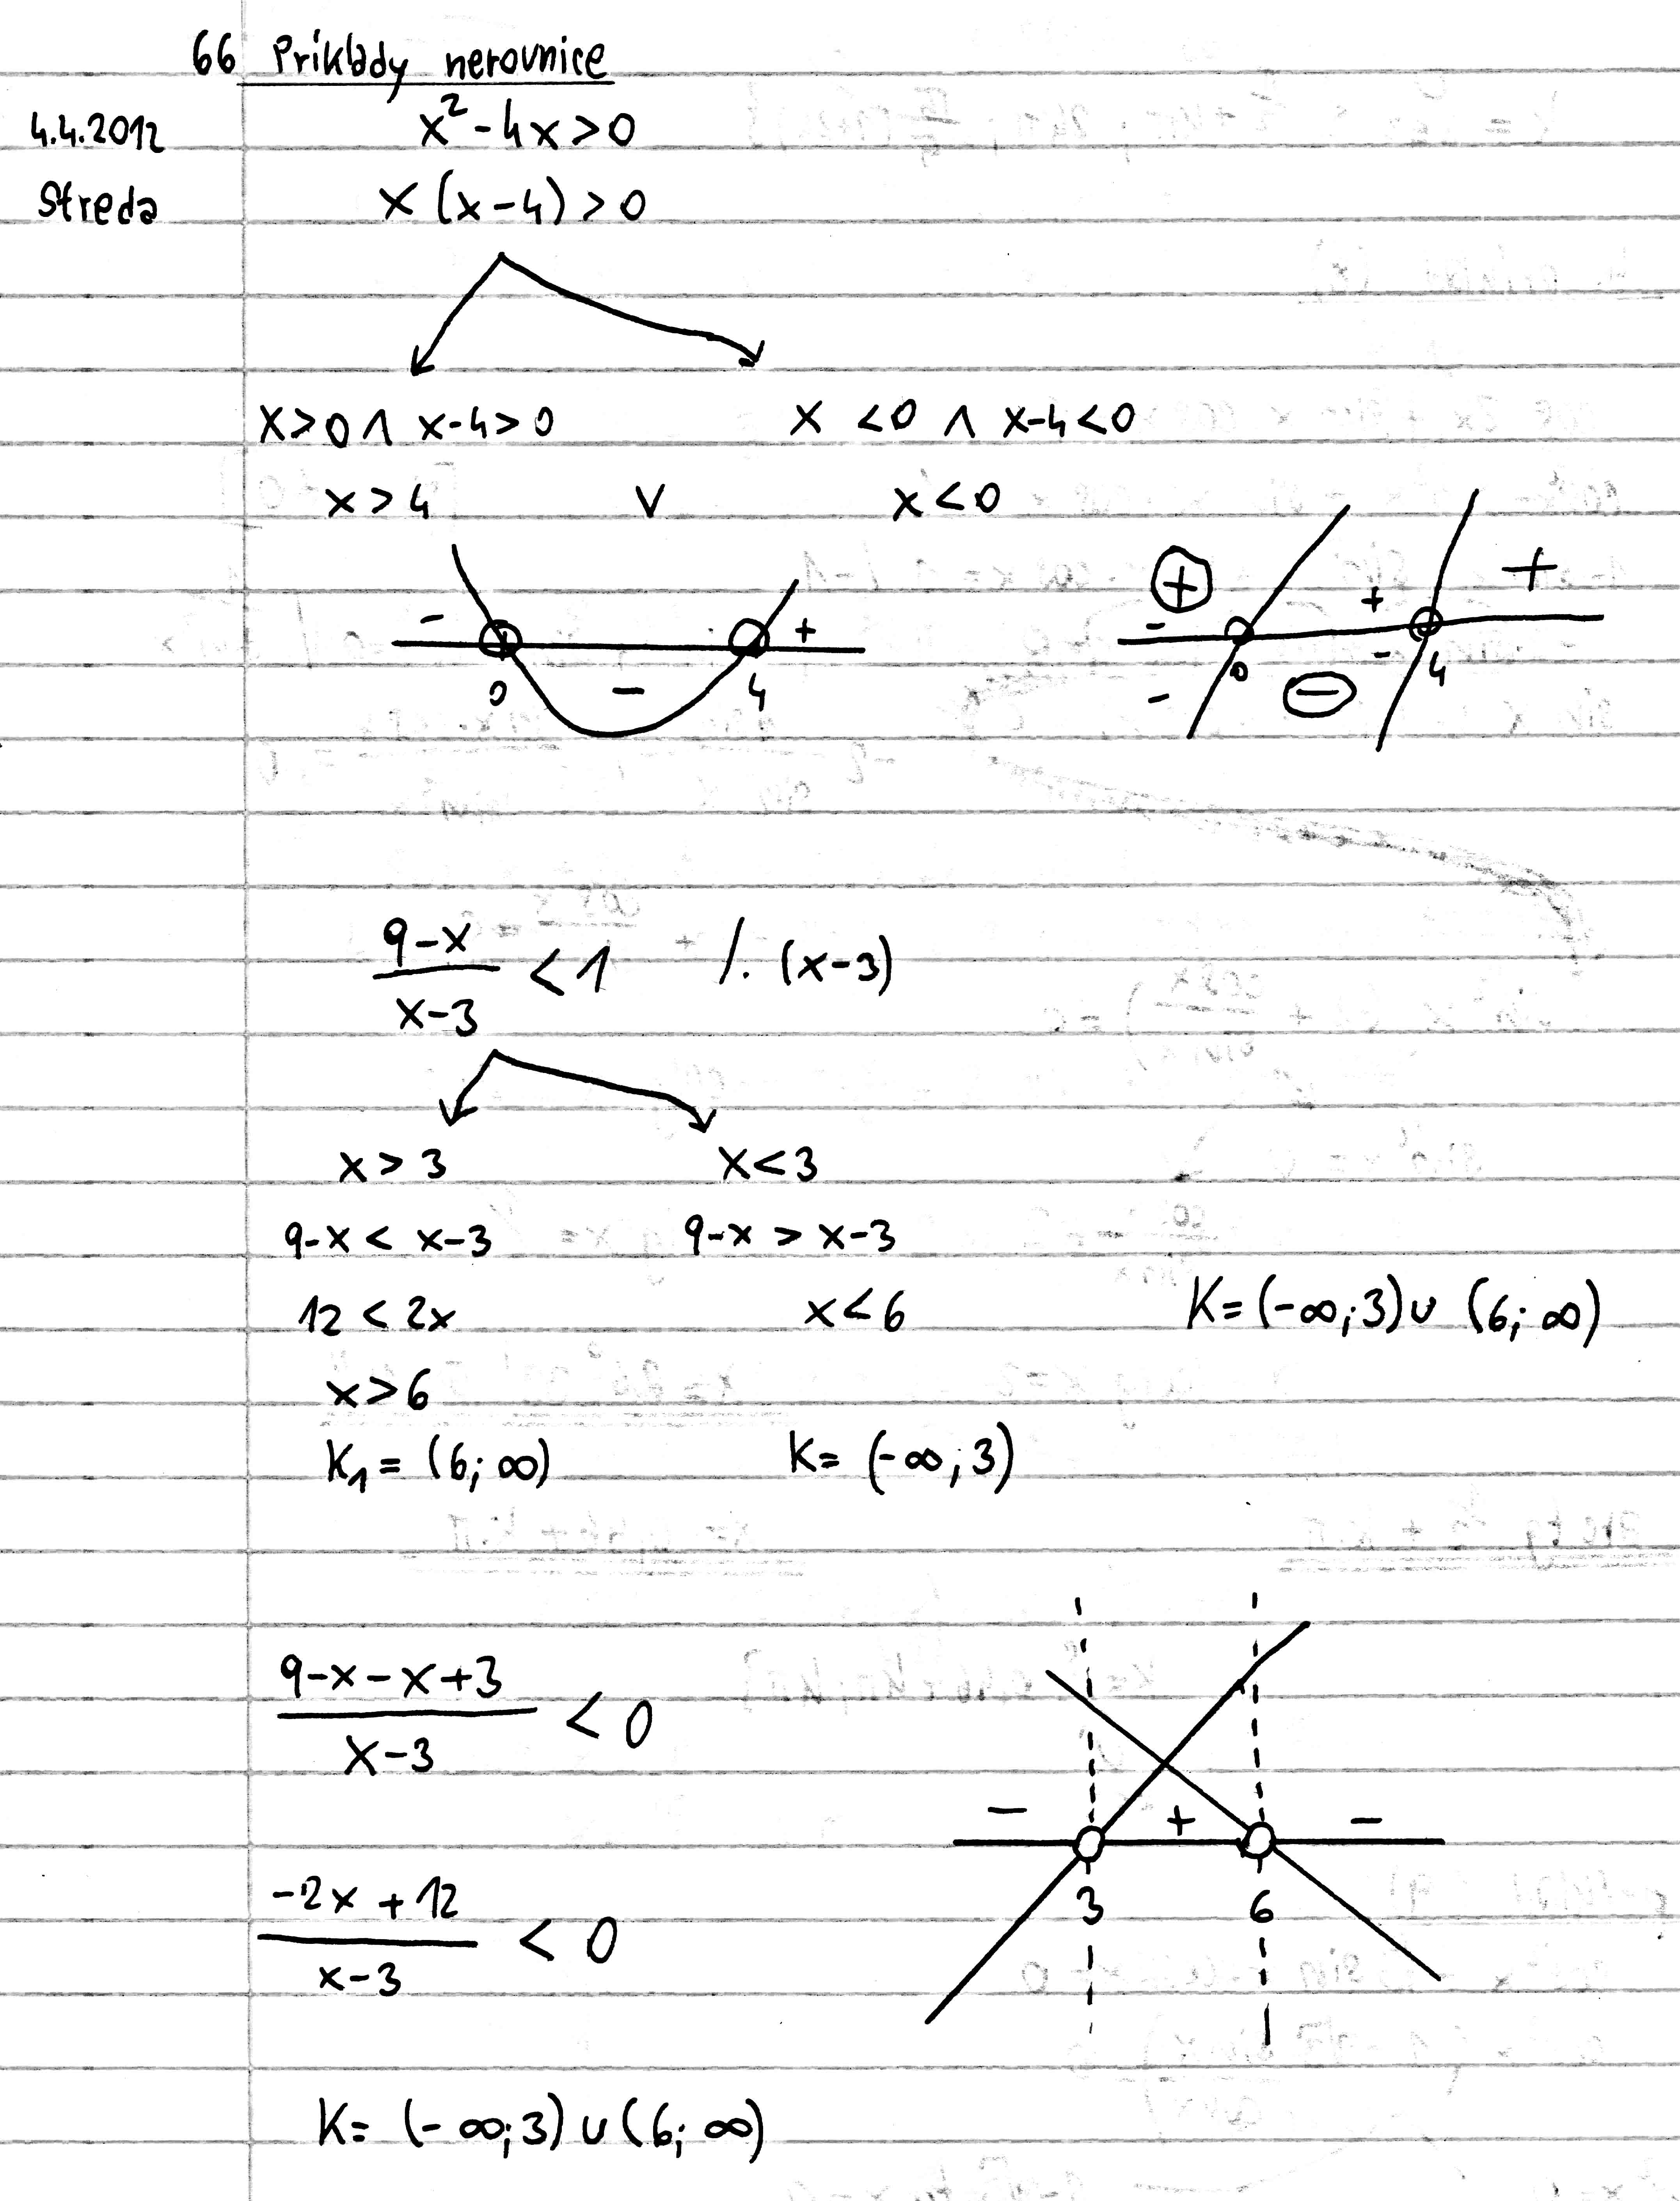 66 Príklady nerovnice
4.4.2012
x² - 4x > 0
Streda
x (x-4) > 0
x>0 ∧ x-4>0
x <0 ∧ x-4<0
x > 4 ∨ x < 0
- +
0 - 4
+ - + +
- 0 - - 4
9-x / x-3 < 1 /. (x-3)
x > 3
x < 3
9-x < x-3
9-x > x-3
12 < 2x
x < 6
K = (-∞; 3) ∪ (6; ∞)
x > 6
K₁ = (6; ∞)
K = (-∞; 3)
9-x-x+3 / x-3 < 0
- + -
3 6
-2x + 12 / x-3 < 0
K = (-∞; 3) ∪ (6; ∞)